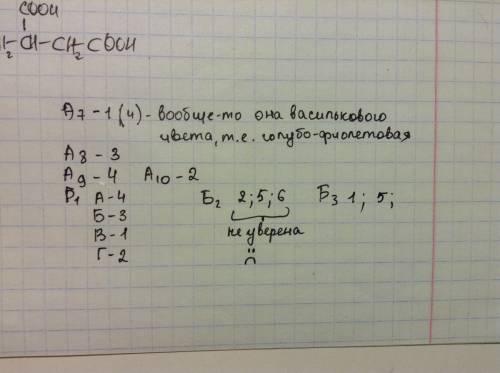 COOH
H₂-CH-CH₂COOH
A7 - 1 (4) - вообще-то она василькового
цвета, т.е. голубо-фиолетовая
A8 - 3
A9 - 4 A10 - 2
В1 А-4 Б2 2; 5; 6 Б3 1; 5;
Б-3 не уверена
В-1
Г-2